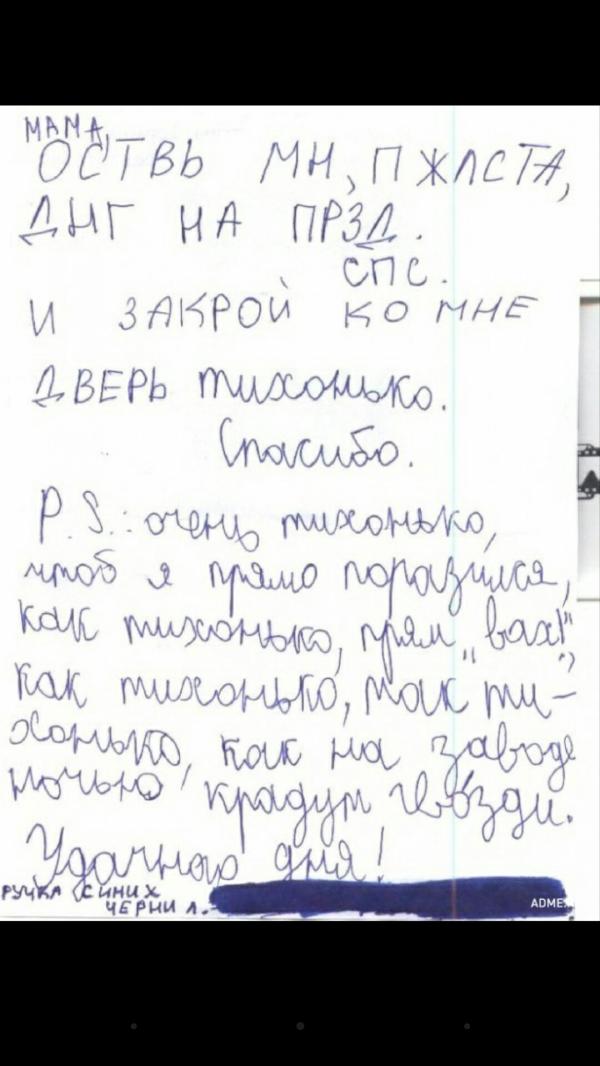 МАМА,
ОСТВЬ МН, ПЖЛСТА,
ДНГ НА ПРЗД.
СПС.
И ЗАКРОЙ КО МНЕ
ДВЕРЬ тихонько.
Спасибо.
P.S.: очень тихонько,
чтоб я прямо поразился,
как тихонько, прям „вах!"
как тихонько, так ти-
хонько, как на заводе
ночью крадут гвозди.
Удачного дня!
РУЧКА СИНИХ
ЧЕРНИЛ.
ADME